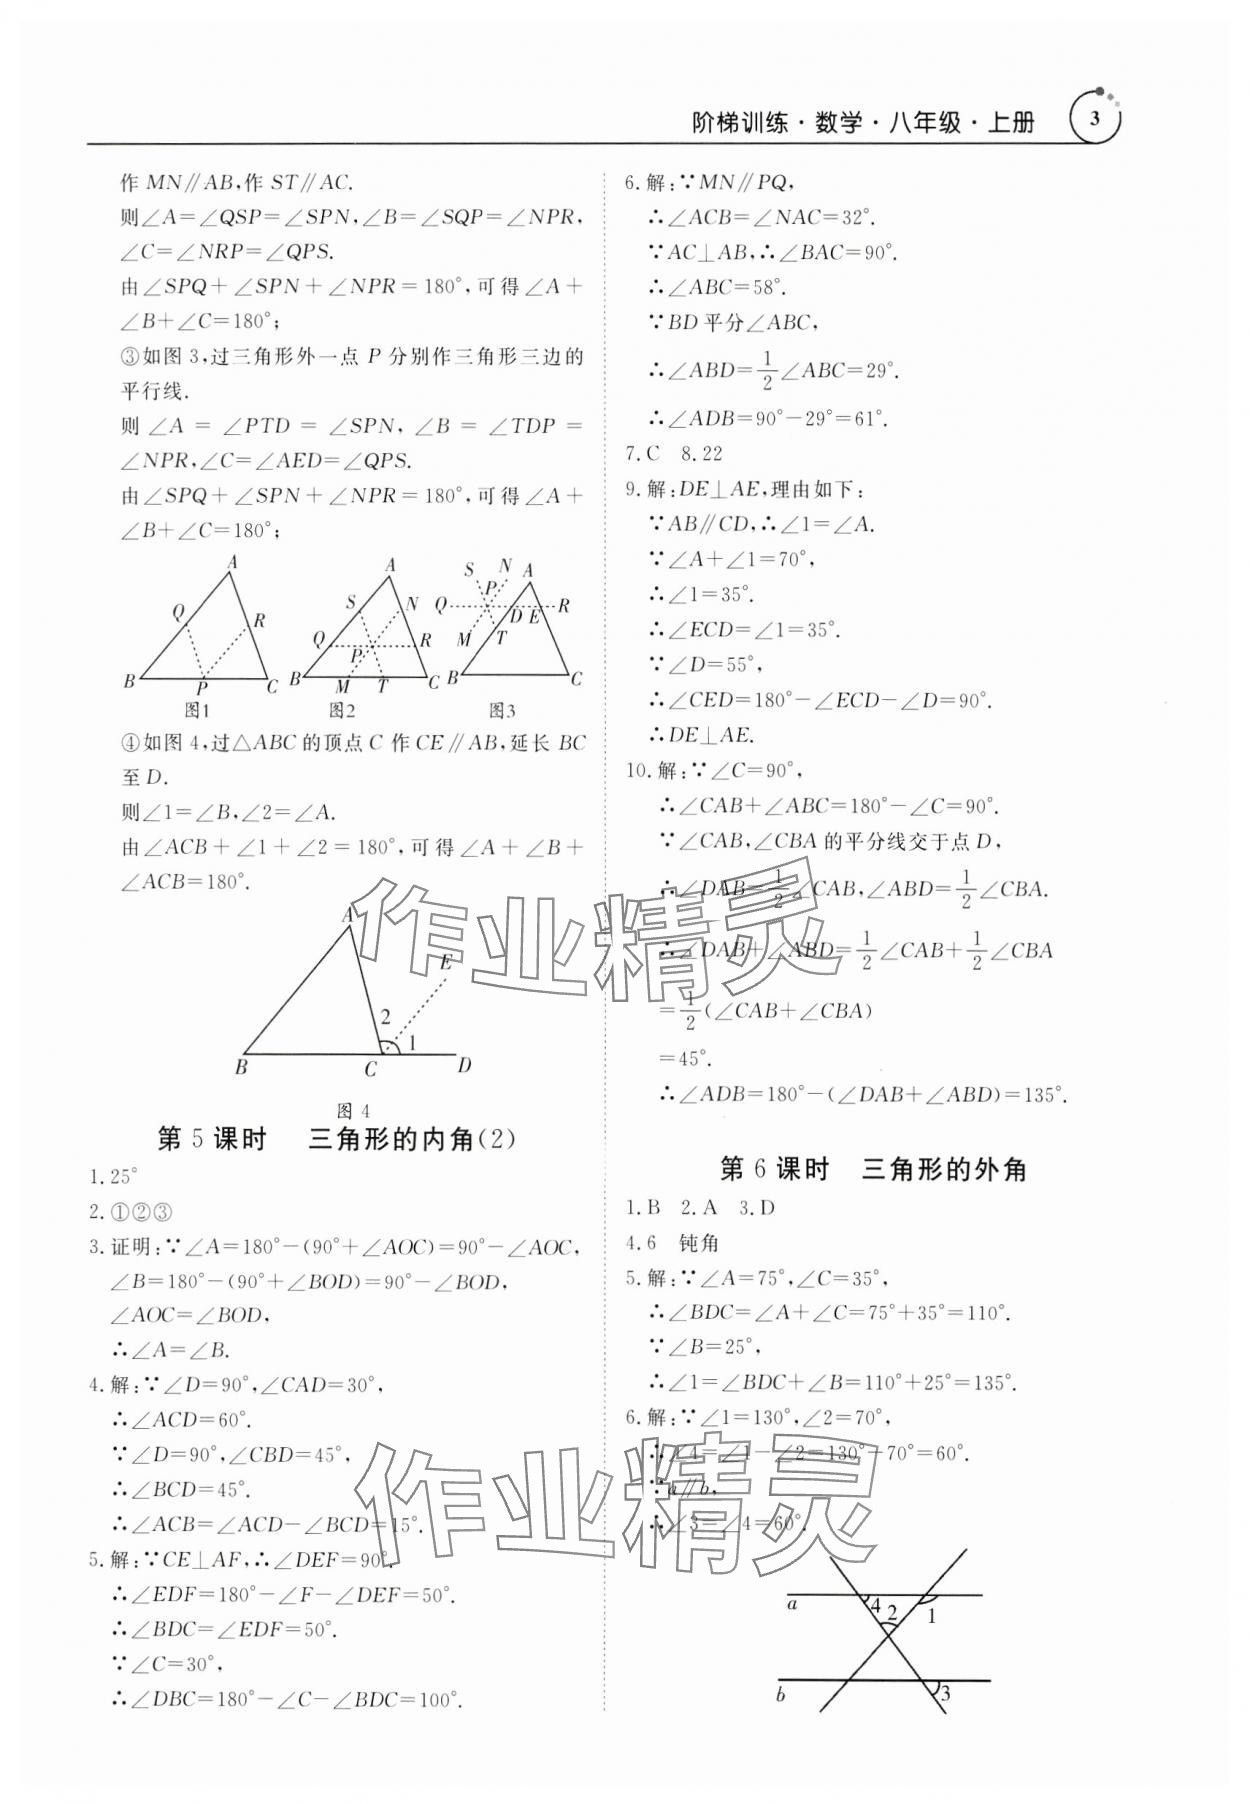 阶梯训练·数学·八年级·上册
3
作MN∥AB,作ST∥AC.
则∠A=∠QSP=∠SPN,∠B=∠SQP=∠NPR,
∠C=∠NRP=∠QPS.
由∠SPQ+∠SPN+∠NPR=180°,可得∠A+
∠B+∠C=180°;
③如图3,过三角形外一点P分别作三角形三边的
平行线.
则∠A=∠PTD=∠SPN,∠B=∠TDP=
∠NPR,∠C=∠AED=∠QPS.
由∠SPQ+∠SPN+∠NPR=180°,可得∠A+
∠B+∠C=180°;
A Q R B P C 图1
A S N Q P R B M T C 图2
S N A P Q D E R M T B C 图3
④如图4,过△ABC的顶点C作CE∥AB,延长BC
至D.
则∠1=∠B,∠2=∠A.
由∠ACB+∠1+∠2=180°,可得∠A+∠B+
∠ACB=180°.
A E 2 1 B C D
图4
第5课时 三角形的内角(2)
1.25°
2.①②③
3.证明:∵∠A=180°-(90°+∠AOC)=90°-∠AOC,
∠B=180°-(90°+∠BOD)=90°-∠BOD,
∠AOC=∠BOD,
∴∠A=∠B.
4.解:∵∠D=90°,∠CAD=30°,
∴∠ACD=60°.
∵∠D=90°,∠CBD=45°,
∴∠BCD=45°.
∴∠ACB=∠ACD-∠BCD=15°.
5.解:∵CE⊥AF,∴∠DEF=90°.
∴∠EDF=180°-∠F-∠DEF=50°.
∴∠BDC=∠EDF=50°.
∵∠C=30°,
∴∠DBC=180°-∠C-∠BDC=100°.
6.解:∵MN∥PQ,
∴∠ACB=∠NAC=32°.
∵AC⊥AB,∴∠BAC=90°.
∴∠ABC=58°.
∵BD平分∠ABC,
∴∠ABD=1/2∠ABC=29°.
∴∠ADB=90°-29°=61°.
7.C 8.22
9.解:DE⊥AE,理由如下:
∵AB∥CD,∴∠1=∠A.
∵∠A+∠1=70°,
∴∠1=35°.
∴∠ECD=∠1=35°.
∵∠D=55°,
∴∠CED=180°-∠ECD-∠D=90°.
∴DE⊥AE.
10.解:∵∠C=90°,
∴∠CAB+∠ABC=180°-∠C=90°.
∵∠CAB,∠CBA的平分线交于点D,
∴∠DAB=1/2∠CAB,∠ABD=1/2∠CBA.
∴∠DAB+∠ABD=1/2∠CAB+1/2∠CBA
=1/2(∠CAB+∠CBA)
=45°.
∴∠ADB=180°-(∠DAB+∠ABD)=135°.
第6课时 三角形的外角
1.B 2.A 3.D
4.6 钝角
5.解:∵∠A=75°,∠C=35°,
∴∠BDC=∠A+∠C=75°+35°=110°.
∵∠B=25°,
∴∠1=∠BDC+∠B=110°+25°=135°.
6.解:∵∠1=130°,∠2=70°,
∴∠4=∠1-∠2=130°-70°=60°.
∵a∥b,
∴∠3=∠4=60°.
a 4 2 1
b 3
作业精灵
作业精灵